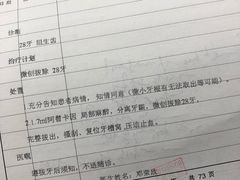 诊断
28牙 阻生齿
治疗计划
微创拔除 28牙
处置
充分告知患者病情，知情同意（微小牙根有无法取出等可能）。
2 1.7ml阿替卡因 局部麻醉，分离牙龈，微创拔除28牙，
完整拔出，搔刮、复位牙槽窝 压迫止血。
医嘱
遵拔牙后须知，不适随诊。
医生姓名：邓荣
共 73 页